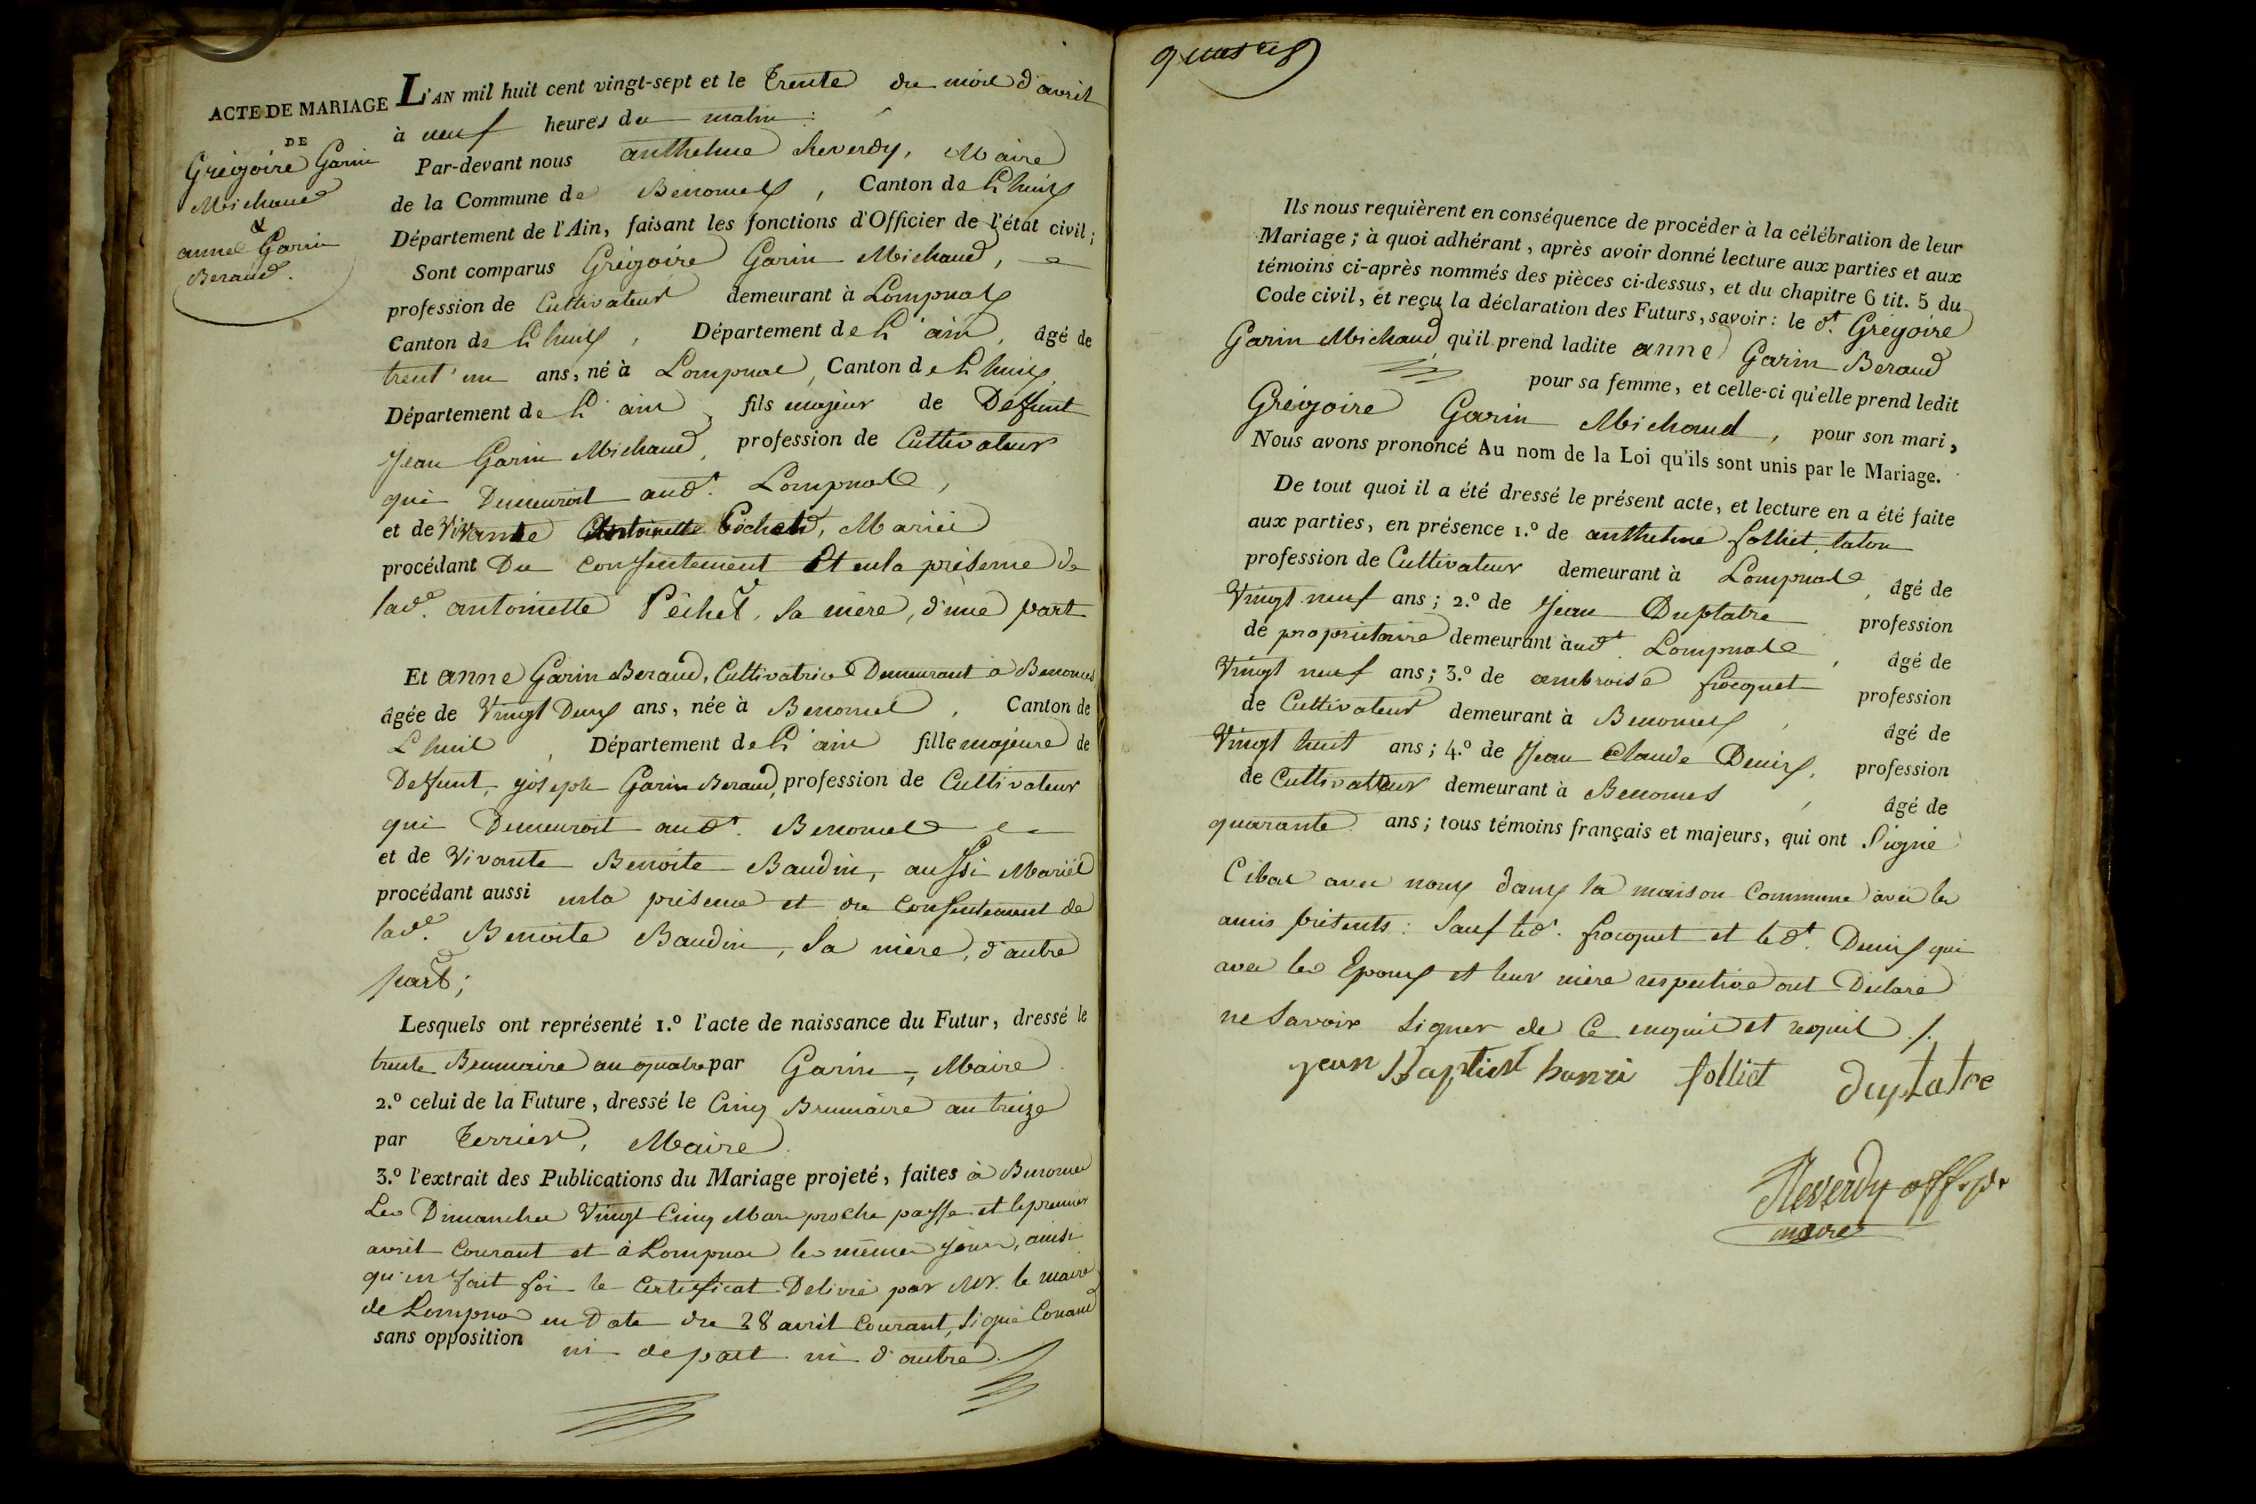 ACTE DE MARIAGE
DE
Grégoire Garin
Michaud
&
anne Garin
Beraud.
L'AN mil huit cent vingt-sept et le trente du mois d'avril
à neuf heures du matin :
Par-devant nous anthelme Reverdy, Maire
de la Commune de Benonces, Canton de Lhuis
Département de l'Ain, faisant les fonctions d'Officier de l'état civil ;
Sont comparus Grégoire Garin Michaud,
profession de Cultivateur demeurant à Lompnas
Canton de Lhuis, Département de L'ain, âgé de
trent'un ans, né à Lompnas, Canton de Lhuis,
Département de L'ain, fils majeur de Deffunt
Jean Garin Michaud, profession de Cultivateur
qui Demeuroit aud.t Lompnas,
et de Vivante Antoinette Pochet, Mariés
procédant Du Consentement Et en la présence de
lad.e antoinette Péchet, sa mère, d'une part
Et anne Garin Beraud, Cultivatrice Demeurant à Benonces
âgée de Vingt Deux ans, née à Benonces, Canton de
Lhuis, Département de L'ain fille majeure de
Deffunt, joseph Garin Beraud, profession de Cultivateur
qui Demeuroit aud.t Benonces
et de Vivante Benoite Baudin, aussi Mariés
procédant aussi en la présence et du Consentement de
lad.e Benoite Baudin, sa mère, d'autre
part ;
Lesquels ont représenté 1.º l'acte de naissance du Futur, dressé le
trente Brumaire an quatre par Garin, Maire
2.º celui de la Future, dressé le Cinq Brumaire an treize
par Terrier, Maire
3.º l'extrait des Publications du Mariage projeté, faites à Benonces
Les Dimanches Vingt Cinq Mars proche passé et le premier
avril Courant et à Lompnas les mêmes jours, ainsi
qu'en fait foi le Certificat Delivré par Mr. le maire
de Lompnas en Date du 28 avril Courant, signé Conand
sans opposition ni de part ni d'autre.
Ils nous requièrent en conséquence de procéder à la célébration de leur
Mariage ; à quoi adhérant, après avoir donné lecture aux parties et aux
témoins ci-après nommés des pièces ci-dessus, et du chapitre 6 tit. 5 du
Code civil, et reçu la déclaration des Futurs, savoir : le d.t Grégoire
Garin Michaud qu'il prend ladite anne Garin Beraud
pour sa femme, et celle-ci qu'elle prend ledit
Grégoire Garin Michaud, pour son mari,
Nous avons prononcé Au nom de la Loi qu'ils sont unis par le Mariage.
De tout quoi il a été dressé le présent acte, et lecture en a été faite
aux parties, en présence 1.º de anthelme folliet, laton
profession de Cultivateur demeurant à Lompnas, âgé de
Vingt neuf ans ; 2.º de Jean Duplatre profession
de propriétaire demeurant à aud.t Lompnas, âgé de
Vingt neuf ans ; 3.º de ambroise frocquet profession
de Cultivateur demeurant à Benonces, âgé de
Vingt huit ans ; 4.º de Jean Claude Denis, profession
de Cultivateur demeurant à Benonces, âgé de
quarante ans ; tous témoins français et majeurs, qui ont signé
avec nous dans la maison Commune avec les
amis présents : Sauf led. frocquet et led.t Denis qui
avec les Epoux et leur mère respective ont Déclaré
ne Savoir signer de Ce enquis et requis ./.
jean Baptist hanri folliet duplatre
Reverdy
maire